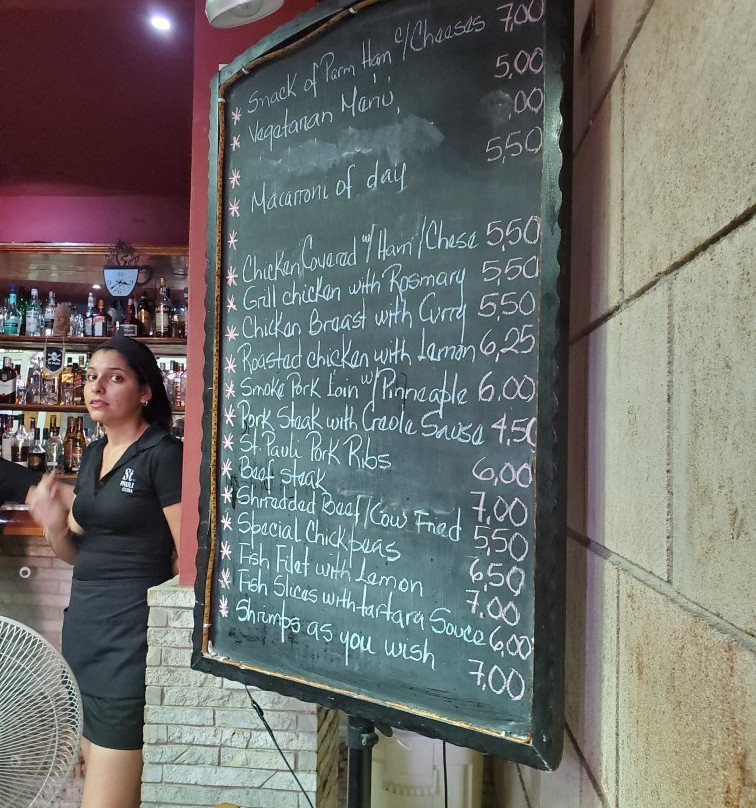 * Snack of Parm Ham c/Cheeses 7,00
* Vegetarian Menú, 5,00
* ,00
* Macarroni of day 5,50
*
* Chicken Covered w/Ham/Chese 5,50
* Grill chicken with Rosmary 5,50
* Chicken Breast with Curry 5,50
* Roasted chicken with Lemon 6,25
* Smoke Pork Loin w/Pinneaple 6,00
* Pork Steak with Creole Sause 4,50
* St. Pauli Pork Ribs 6,00
* Beef steak 7,00
* Shredded Beef/Cow Fried 5,50
* Special Chickpeas 6,50
* Fish Filet with Lemon 7,00
* Fish Slices with tartara Souce 6,00
* Shrimps as you wish 7,00
St.
PAULI